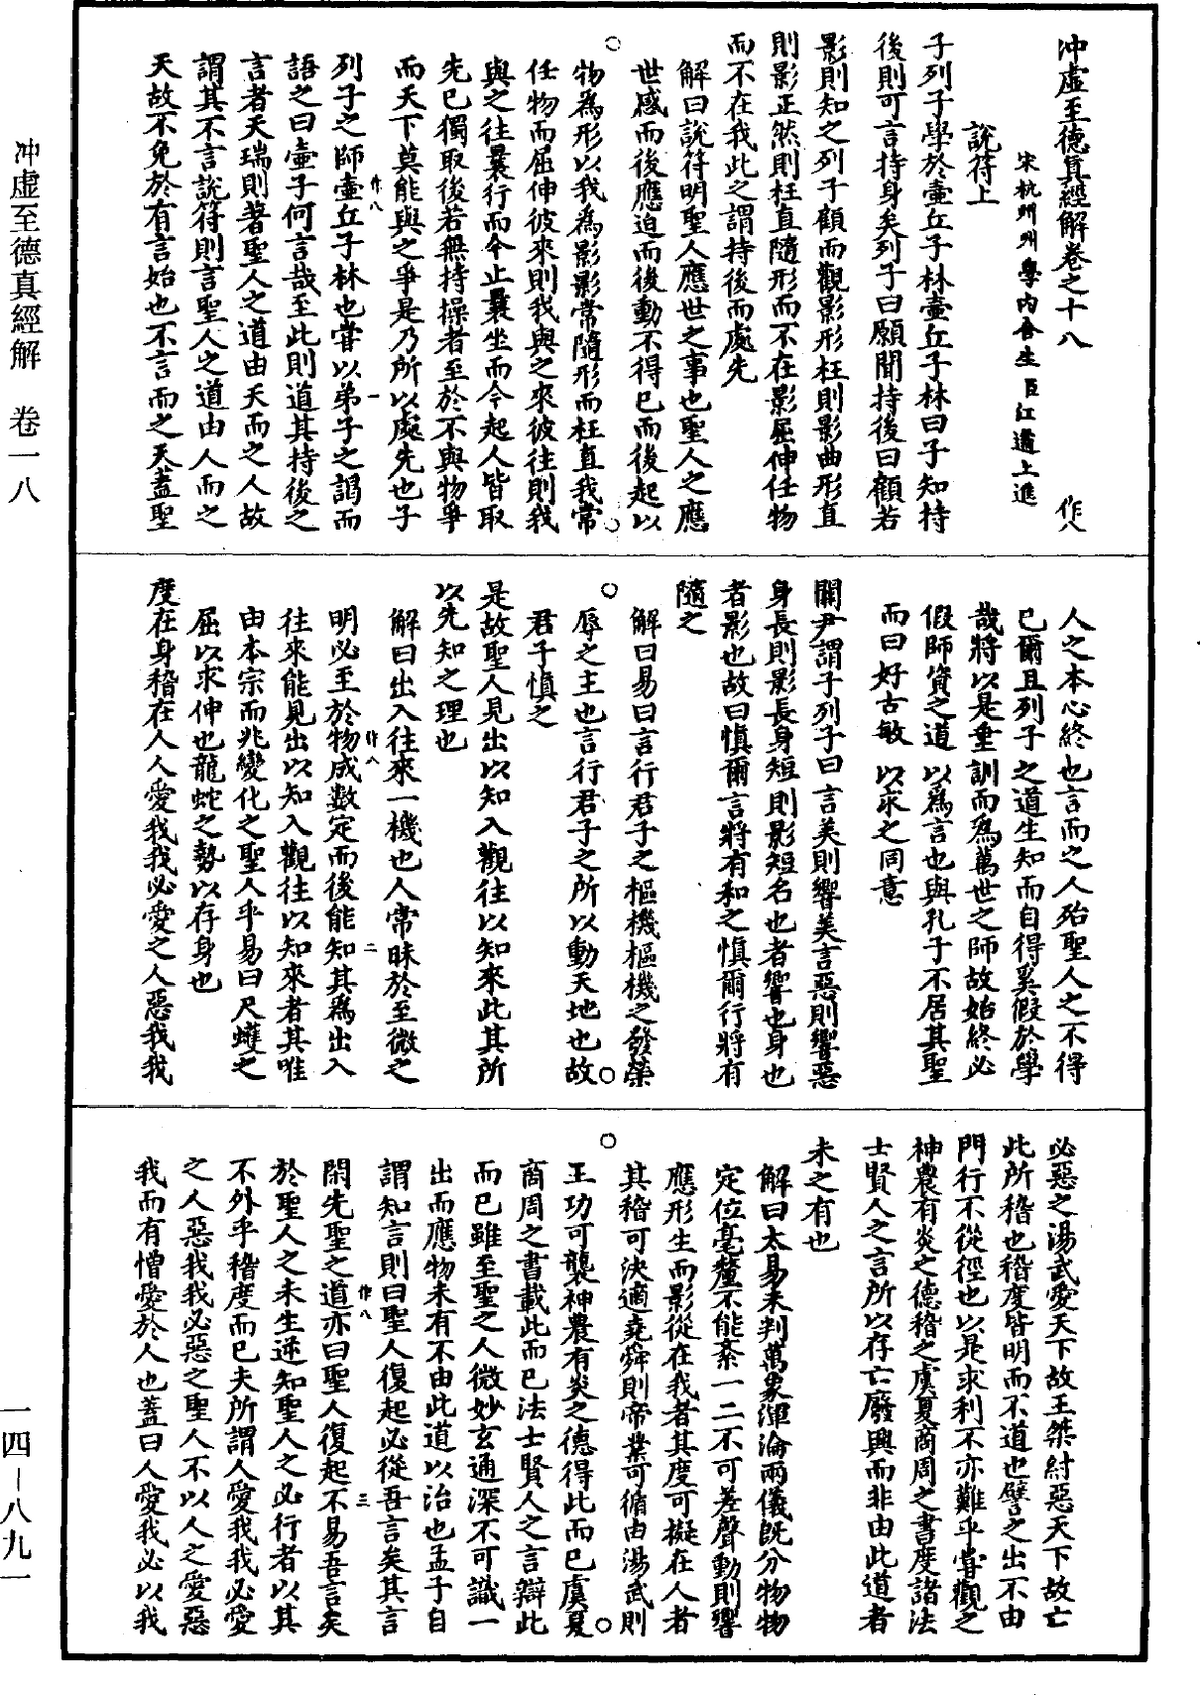 冲虛至德真經解卷之十八 作八
宋杭州州學內舍生臣江遹上進
說符上
子列子學於壺丘子林壺丘子林曰子知持
後則可言持身矣列子曰願聞持後曰顧若
影則知之列子顧而觀影形枉則影曲形直
則影正然則枉直隨形而不在影屈伸任物
而不在我此之謂持後而處先
解曰說符明聖人應世之事也聖人之應
世感而後應迫而後動不得已而後起以
物為形以我為影影常隨形而枉直我常
任物而屈伸彼來則我與之來彼往則我
與之往曩行而今止曩坐而今起人皆取
先已獨取後若無持操者至於不與物爭
而天下莫能與之爭是乃所以處先也子
列子之師壺丘子林也嘗以弟子之謁而
語之曰壺子何言哉至此則道其持後之
言者天瑞則著聖人之道由天而之人故
謂其不言說符則言聖人之道由人而之
天故不免於有言始也不言而之天蓋聖
作八 一
人之本心終也言而之人殆聖人之不得
已爾且列子之道生知而自得奚假於學
哉將以是垂訓而為萬世之師故始終必
假師資之道以為言也與孔子不居其聖
而曰好古敏以求之同意
關尹謂子列子曰言美則響美言惡則響惡
身長則影長身短則影短名也者響也身也
者影也故曰慎爾言將有和之慎爾行將有
隨之
解曰易曰言行君子之樞機樞機之發榮
辱之主也言行君子之所以動天地也故
君子慎之
是故聖人見出以知入觀往以知來此其所
以先知之理也
解曰出入往來一機也人常昧於至微之
明必至於物成数定而後能知其為出入
往來能見出以知入觀往以知來者其唯
由本宗而兆變化之聖人乎易曰尺蠖之
屈以求伸也龍蛇之勢以存身也
度在身稽在人人愛我我必愛之人惡我我
作八 二
必惡之湯武愛天下故王桀紂惡天下故亡
此所稽也稽度皆明而不道也譬之出不由
門行不從徑也以是求利不亦難乎嘗觀之
神農有炎之德稽之虞夏商周之書度諸法
士賢人之言所以存亡廢興而非由此道者
未之有也
解曰太易未判萬象渾淪兩儀既分物物
定位毫釐不能紊一二不可差聲動則響
應形生而影從在我者其度可擬在人者
其稽可決適堯舜則帝業可循由湯武則
王功可襲神農有炎之德得此而已虞夏
商周之書載此而已法士賢人之言辯此
而已雖至聖之人微妙玄通深不可識一
出而應物未有不由此道以治也孟子自
謂知言則曰聖人復起必從吾言矣其言
閑先聖之道亦曰聖人復起不易吾言矣
於聖人之未生逆知聖人之必行者以其
不外乎稽度而已夫所謂人愛我我必愛
之人惡我我必惡之聖人不以人之愛惡
我而有憎愛於人也蓋曰人愛我必以我
作八 三
冲虛至德真經解 卷一八
一四－八九一